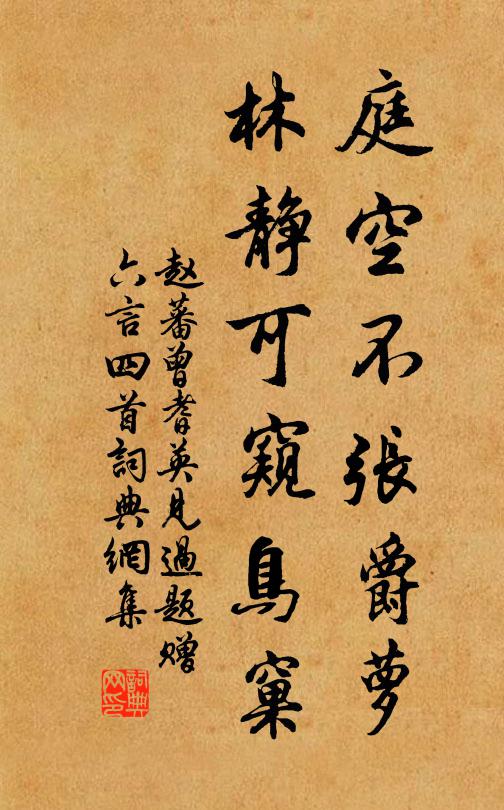 庭空不張爵萝
林静可窺鳥窠
赵蕃曾耆英見過题赠
六言四首詞典網集
詞典
网印